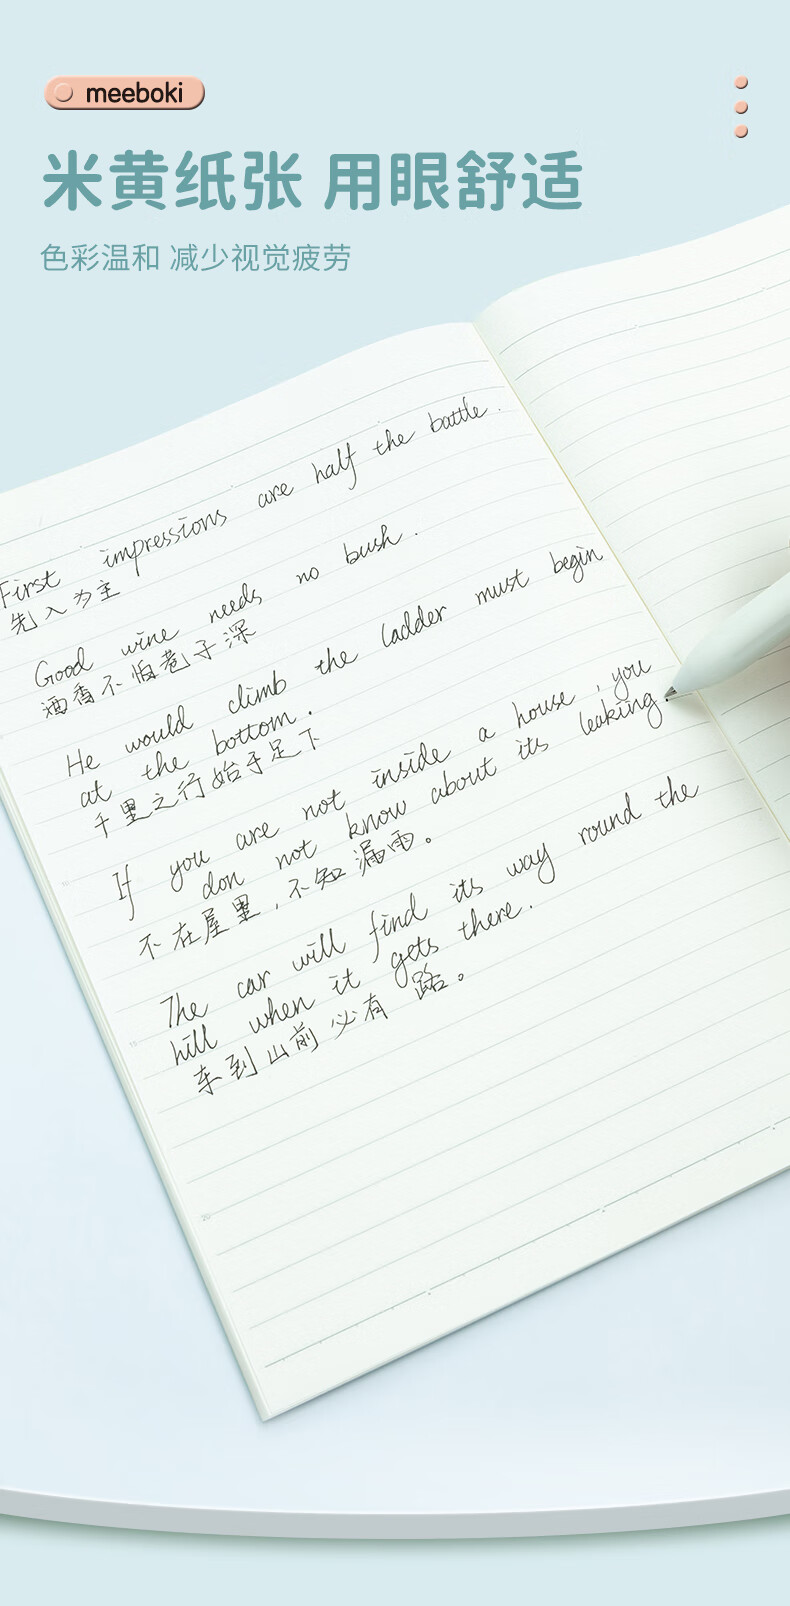 meeboki
米黄纸张 用眼舒适
色彩温和 减少视觉疲劳
First impressions are half the battle.
先入为主
Good wine needs no bush.
酒香不怕巷子深
He would climb the ladder must begin
at the bottom.
千里之行始于足下
If you are not inside a house, you
don not know about its leaking
不在屋里,不知漏雨。
The car will find its way round the
hill when it gets there.
车到山前必有路。
15
20